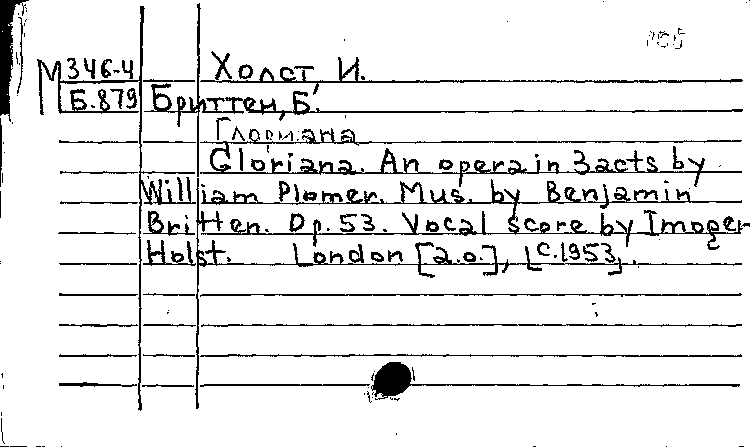 Холст, И.
М 346-4
Б.879
Бриттен, Б.
Глориана
Gloriana. An opera in 3 acts by
William Plomer. Mus. by Benjamin
Britten. Op. 53. Vocal score by Imogen
Holst. London [a.o.], [c.1953].